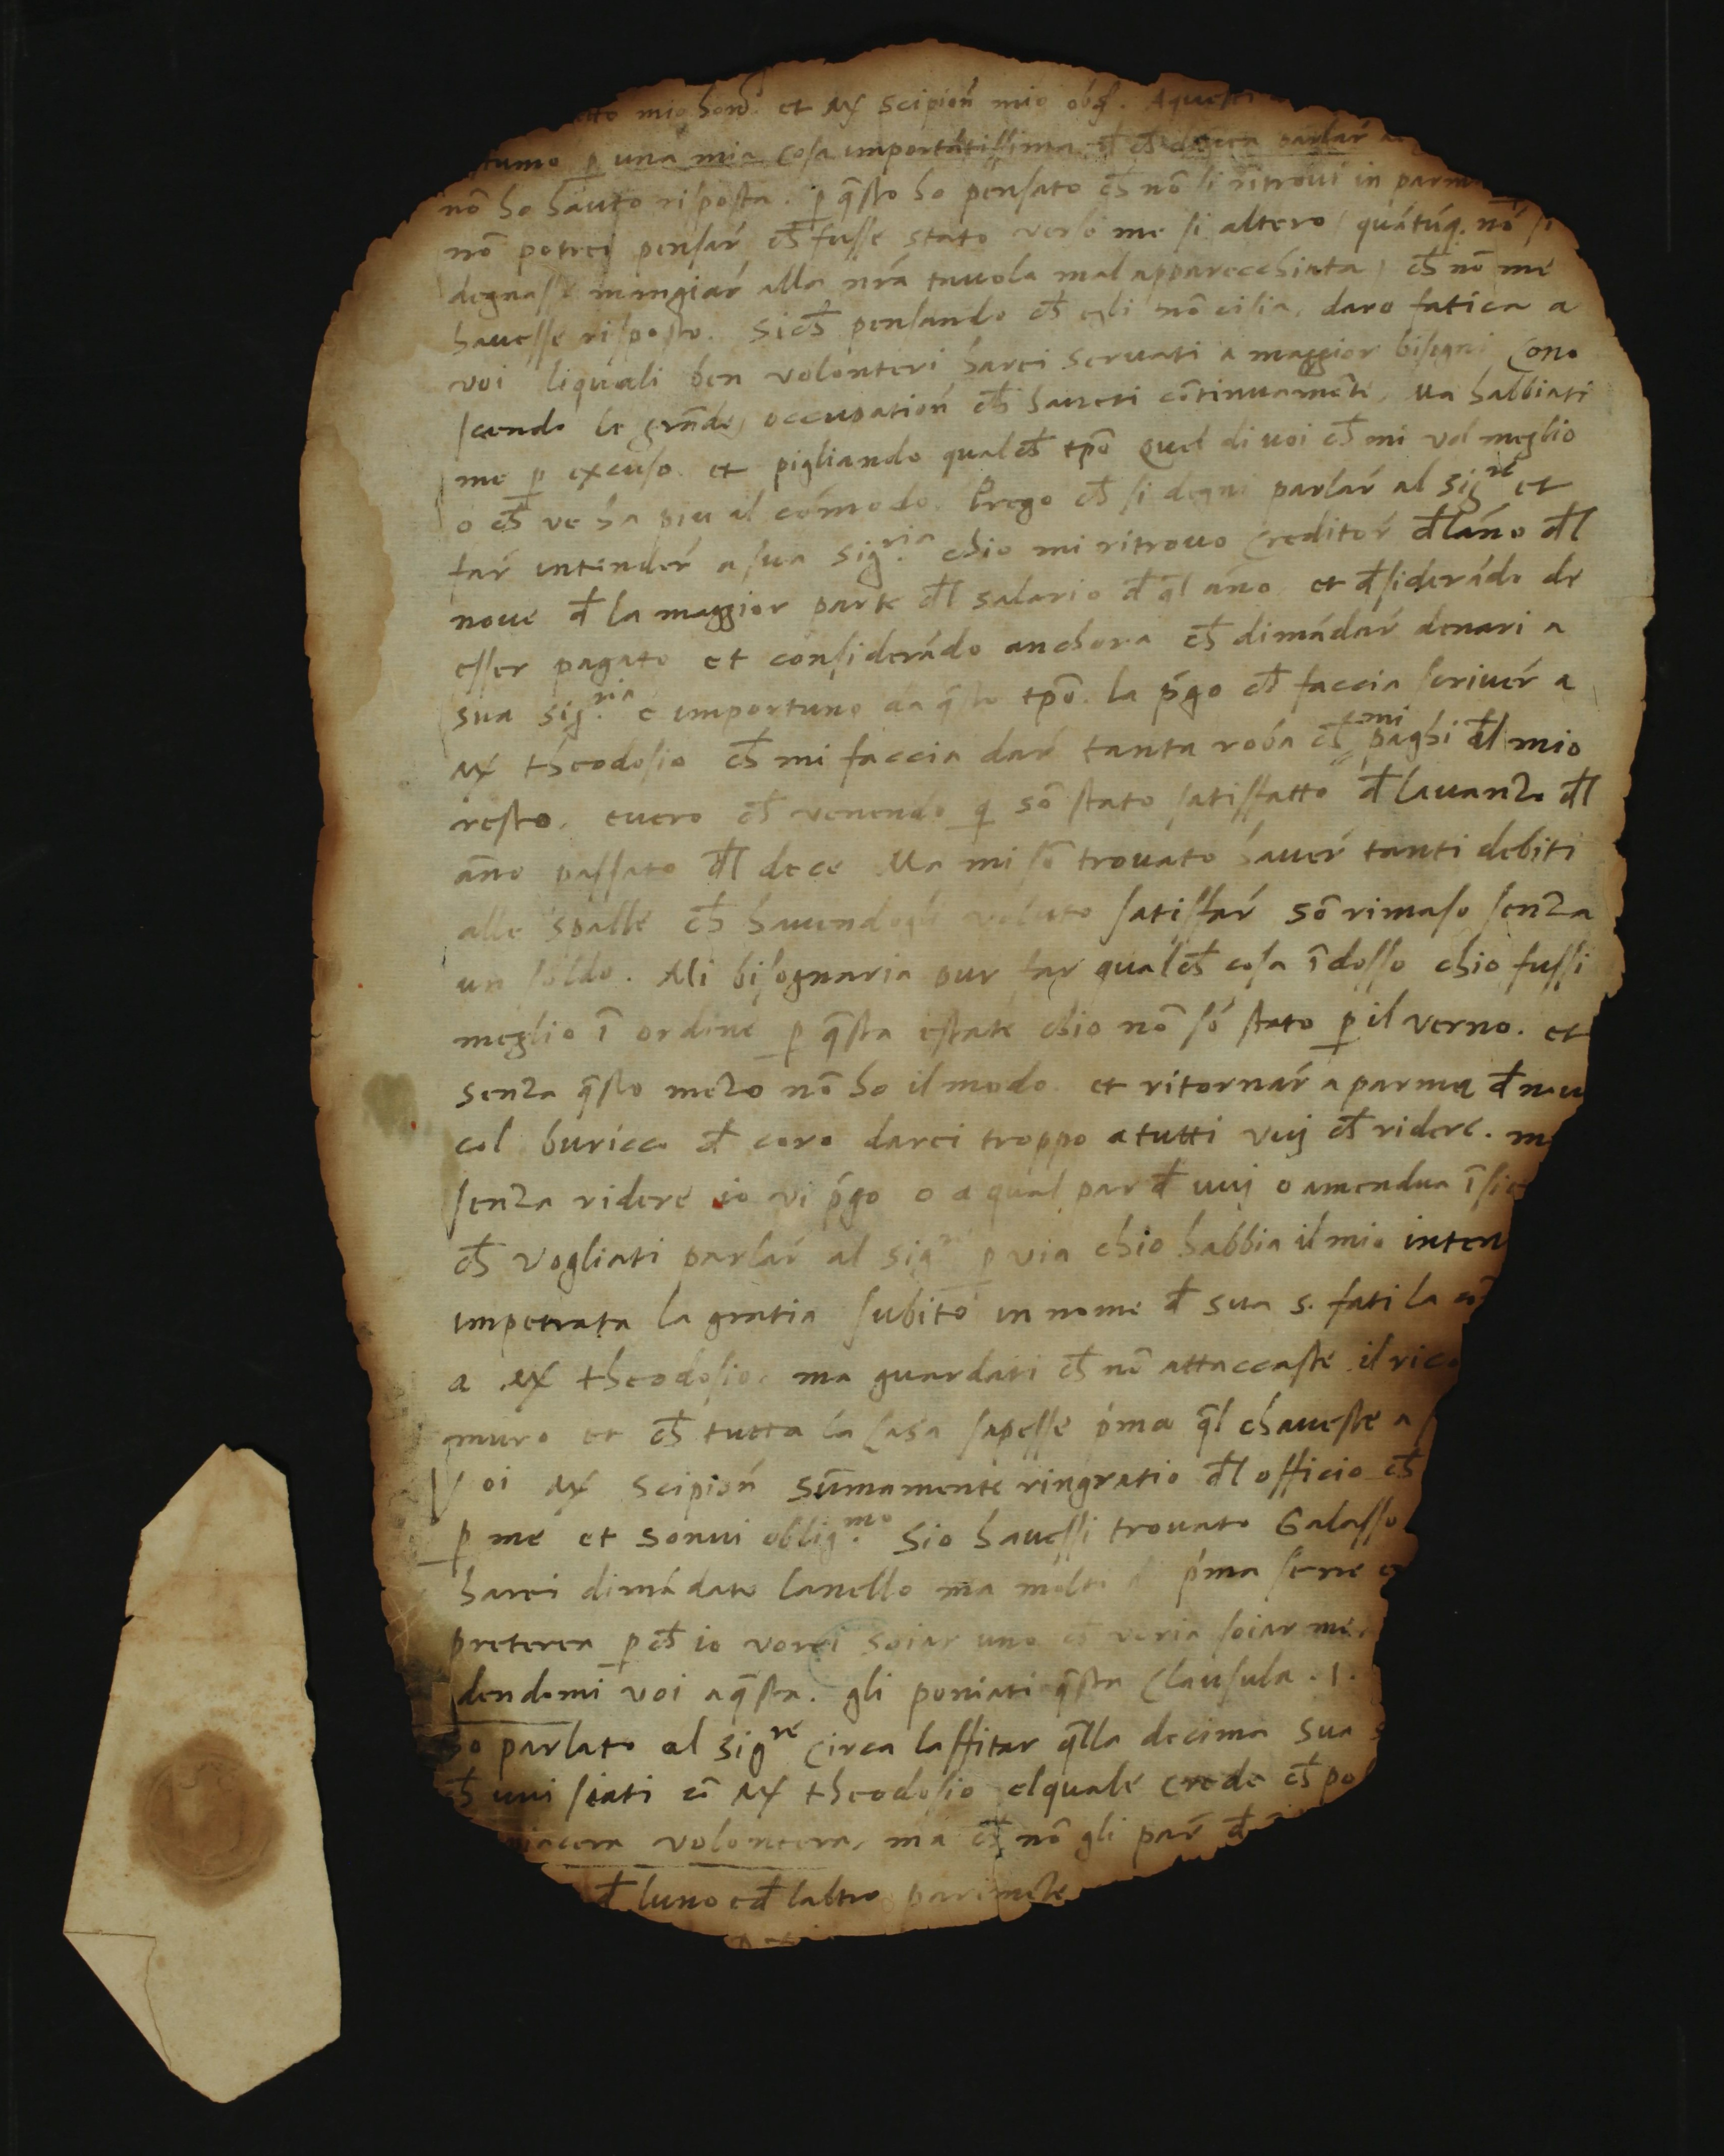 mio hon.do et Mx scipioń mio obs.
una mia cosa importātissima đ ch̄ parlaŕ
nō ho hauuto risposta. p̱ q̄sto ho pensato ch̄ nō si ritroui in parm
nō potrei pensaŕ ch̄ fusse stato verso me si altero quātūq. nō si
degnasse mangiaŕ alla nr̄a tauola mal apparecchiata, ch̄ nō me
hauesse risposto. Sich̄ pensando ch̄ egli nō ci sia, daro fatica a
voi liquali ben volonteri harei seruati a maggior bisogni Cono
scendo le grāde occupationń ch̄ haueti cōtinuamēte, Ma habbiati
me p̱ excuso. et pigliando qualch̄ tp̄o quel di uoi ch̄ mi vol meglio
o ch̄ ve ha piu al cōmodo. Prego ch̄ si degni parlaŕ al sig.re et
far intendeŕ a sua sig.ria chio mi ritrouo Creditoŕ đ lāno đl
noue đ la maggior parte đl salario đ q̄l āno. et đsiderādo de
esser pagato et considerādo anchora ch̄ dimādaŕ denari a
sua sig.ria e importuno da q̄sto tp̄o. la p̄go ch̄ faccia scriueŕ a
Mx theodosio ch̄ mi faccia daŕ tanta roba ch̄ mi paghi đl mio
resto. euero ch̄ venendo q̱ sō stato satisfatto đ lauanzo đl
āno passato đl dece Ma mi sō trouato haueŕ tanti debiti
alle spalle ch̄ hauendogli voluto satisfaŕ sō rimaso senza
un soldo. Mi bisognaria pur far qualch̄ cosa ī dosso chio fussi
meglio ī ordine p̱ q̄sta estate chio nō sō stato p̱ il verno. et
senza q̄sto mezo nō ho il modo. et ritornaŕ a parma đ nou
col buricco đ coro darei troppo a tutti vuj ch̄ ridere. m
senza ridere io vi p̄go o a qual par đ vuj o amendua īsie
ch̄ vogliati parlaŕ al sigre p̱ via chio habbia il mio inten
impetrata la gratia subito in nome đ sua s. fati la cō
a Mx theodosio. ma guardati ch̄ nō attaccaste il rico
muro et ch̄ tutta la Casa sapesse p̄ma q̄l chaueste a
Voi Mx scipioń sūmamente ringratio đl officio ch̄
p̱ me et sonui oblig.mo Sio hauessi trouato Galasso
harei dimādato lanello ma molti p̄ma serne
preterea p̱ch̄ io vorei soiar uno ch̄ voria soiar me.
dendomi voi a q̄sta. gli poniati q̄sta Clausula. i.
ho parlato al sigre Circa laffitar q̄lla decima sua s
ch̄ uui siati cō Mx theodosio elquale Crede ch̄
piacera volontera, ma ch̄ nō gli paŕ đ
đ luno eđ laltro parimēte